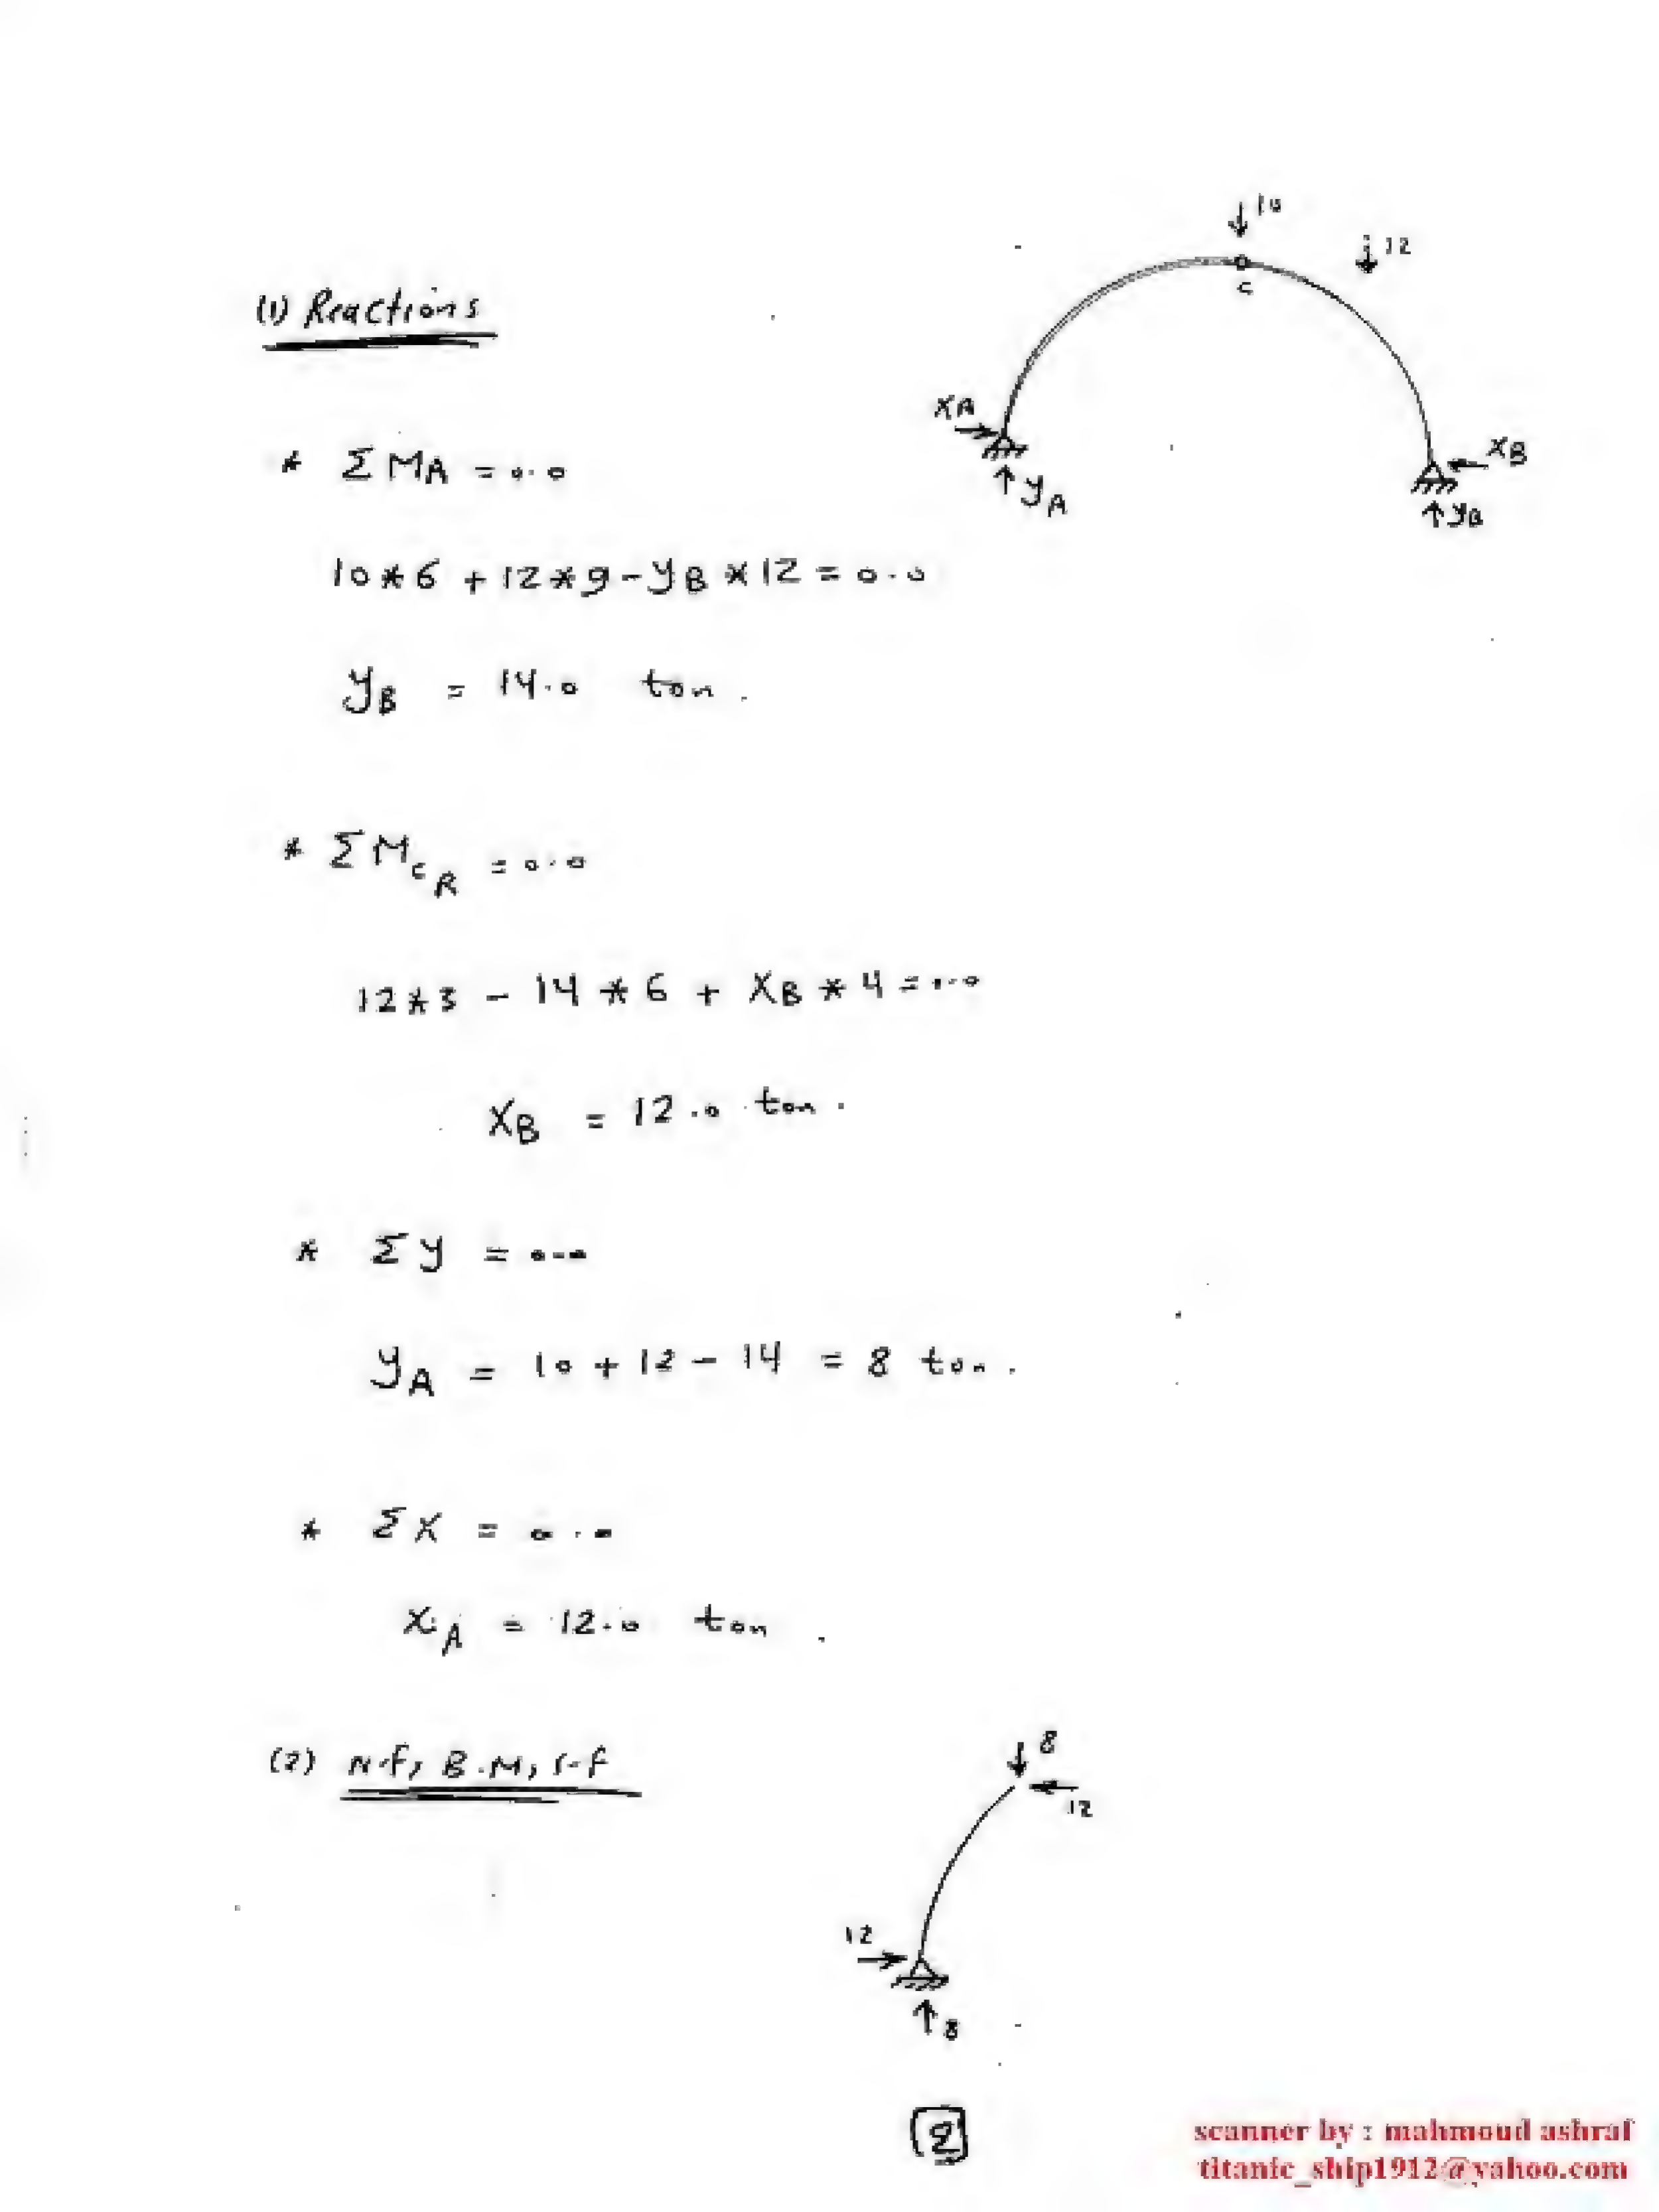 ↓10
↓12
(1) Reactions
c
XA
XB
* ΣMA = 0.0
yA
yB
10*6 + 12*9 - yB * 12 = 0.0
yB = 14.0 ton.
* ΣMcR = 0.0
12*3 - 14*6 + XB * 4 = 0.0
XB = 12.0 ton.
* Σy = 0.0
yA = 10 + 12 - 14 = 8 ton.
* ΣX = 0.0
XA = 12.0 ton.
↓8
(2) N.f, B.M, S.f
12
12
↑8
2
scanner by : mahmoud ashraf
titanic_ship1912@yahoo.com